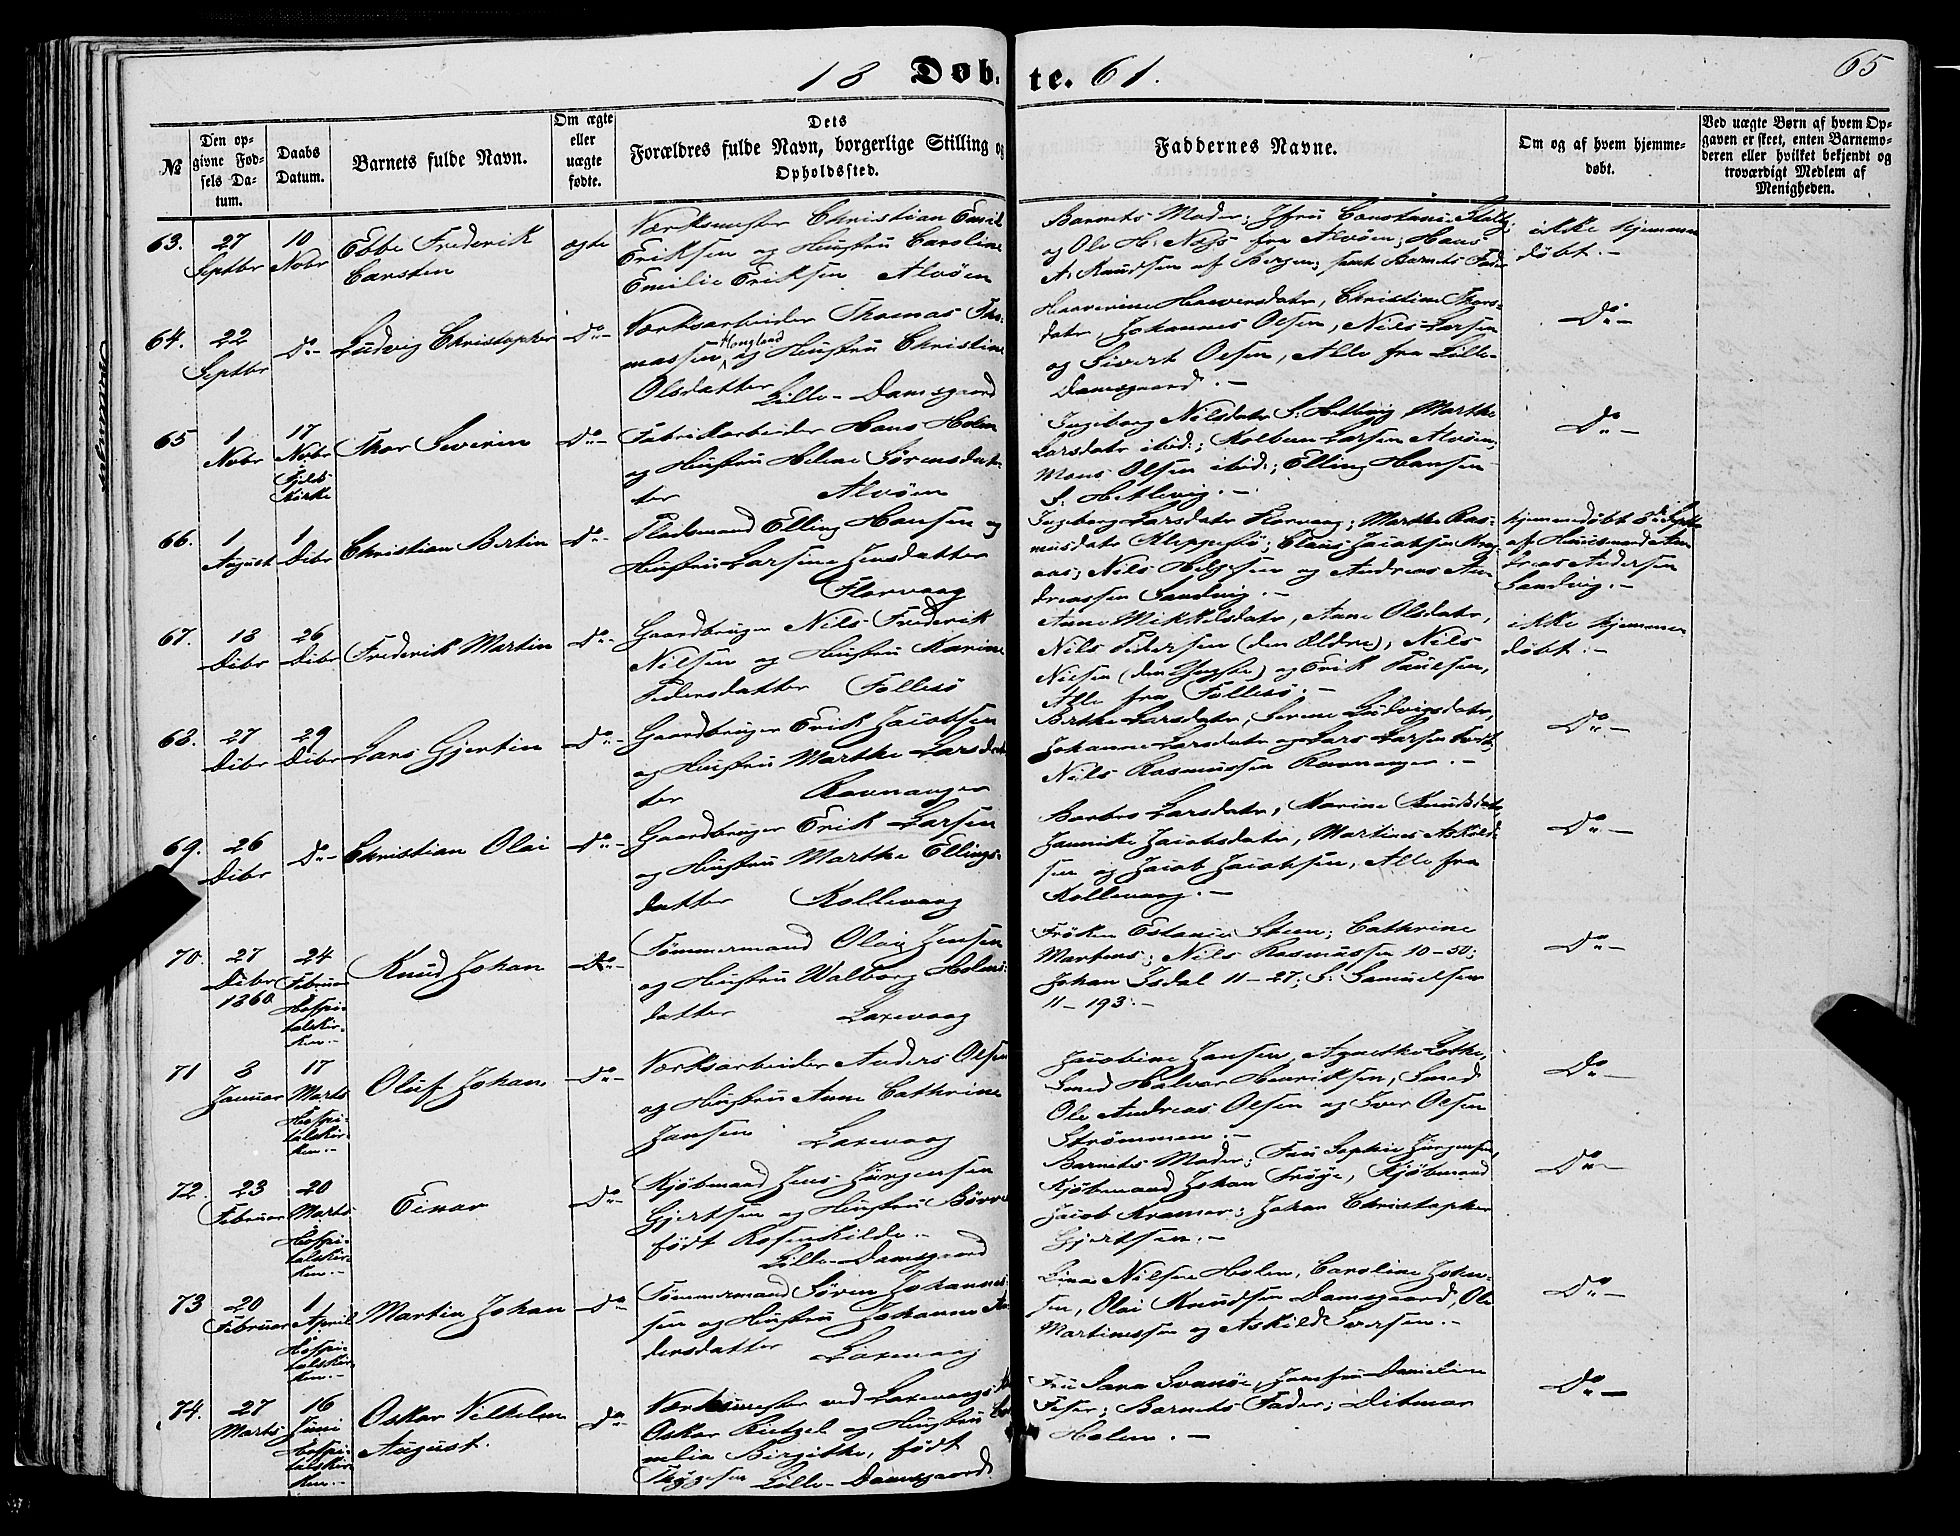 18 Døb-te. 61.
65
№
Den op-
givne Fød-
sels Da-
tum.
Daabs
Datum.
Barnets fulde Navn.
Om ægte
eller
uægte
fødte.
Dets
Forældres fulde Navn, borgerlige Stilling og
Opholdssted.
Faddernes Navne.
Om og af hvem hjemme-
døbt.
Ved uægte Børn af hvem Op-
gaven er skeet, enten Barnemo-
deren eller hvilket bekjendt og
troværdigt Medlem af
Menigheden.
63.
27
Septbr
10
Nobr
Ebbe Frederik
Carsten
ægte
Værksmester Christian Emil
Eriksen og Hustru Caroline
Emilie Eriksen Alvøen
Barnets Moder; Jfru Constance
og Ole H. Næss fra Alvøen; Hans
A. Knudsen af Bergen; samt Barnets Fader
ikke hjemme
døbt.-
64.
22
Septbr
Do-
Ludvig Christopher
Do-
Værksarbeider Thomas Tho-
massen Haugland og Hustru Christine
Olsdatter Lille-Damsgaard
Haaverine Haaversdatr, Christine Thors-
datr, Johannes Olsen, Nils Larsen
og Sivert Olsen, Alle fra Lille-
Damsgaard.-
Do-
65
1
Nobr
17
Nobr
Fjelds
Kirke
Thor Severin
Do-
Fabrikarbeider Hans Holm
og Hustru Helene Sørensdat-
ter Alvøen
Ingeborg Nilsdatr S. Hetlevig Marthe
Larsdatr ibid; Kolbein Larsen Alvøen;
Mons Olsen ibid; Elling Hansen
S. Hetlevig.-
Do-
66.
1
August
1
Dcbr
Christian Bertin
Do-
Pladsmand Elling Hansen og
Hustru Larsine Jensdatter
Florvaag
Ingeborg Larsdatr Florvaag; Marthe Ras-
musdatr Kleppesø; Claus Jacobsen
Nils Helgesen og Andreas An-
dreassen Sandvig.-
hjemmedøbt
af Huusmand An-
dreas Andersen
Sandvig.-
67.
18
Dcbr
26
Dcbr
Frederik Martin
Do-
Gaardbruger Nils Frederik
Nilsen og Hustru Karine
Pedersdatter Follesø
Anne Mikkelsdatr, Anne Olsdatr,
Nils Pedersen (den Ældre), Nils
Nilsen (den Yngste) og Erik Paulsen,
Alle fra Follesø.-
ikke hjemme
døbt.-
68.
27
Dcbr
29
Dcbr
Lars Gjertin
Do-
Gaardbruger Erik Jacobsen
og Hustru Marthe Larsdat-
ter Ravnanger
Brthe Larsdatr, Serene Ludvigsdatr,
Johanne Larsdatr og Lars Larsen samt
Nils Rasmussen Ravnanger.-
Do-
69.
26
Dcbr
Do-
Christian Olai
Do-
Gaardbruger Erik Larsen
og Hustru Marthe Ellings-
datter Kollevaag
Barbro Larsdatr, Karine Knudsdatr,
Jannike Jacobsdatr, Martinus Askild-
sen og Jacob Jacobsen, Alle fra
Kollevaag.-
Do-
70.
27
Dcbr
1860
24
Februar
Hospi-
talskir-
ken.-
Knud Johan
Do-
Tømmermand Olai Jensen
og Hustru Walborg Holms-
datter Laxevaag
Frøken Estanie Steen; Cathrine
Martens; Nils Rasmussen 10-50;
Johan Isdal 11-27; S. Samuelsen
11-193.-
Do-
71
3
Januar
17
Marts
Hospi-
talskir-
ken.-
Oluf Johan
Do-
Værksarbeider Anders Olsen
og Hustru Anne Cathrine
Jansen Laxevaag
Jacobine Jansen, Agnethe Lothe,
Smed Halvor Henriksen, Smed
Ole Andreas Olsen og Iver Olsen
Strømmen.-
Do-
72.
23
Februar
20
Marts
Hospi-
talskir-
ken.-
Einar
Do-
Kjøbmand Jens Jürgensen
Gjertsen og Hustru Børre
født Rosenkilde.-
Lille-Damsgaard
Barnets Moder; Fru Sophie Jürgensen,
Kjøbmand Johan Frøye, Kjøbmand
Jacob Kramer; Johan Christopher
Gjertsen.-
Do-
73
20
Februar
1
April
Hospi-
talskir-
ken.-
Martin Johan
Do
Tømmermand Søren Johannes-
sen og Hustru Johanne An-
dersdatter Laxevaag
Lina Nilsen Holm, Caroline Johan-
sen, Olai Knudsen Damsgaard, Ole
Martinussen og Askild Iversen.-
Do-
74.
27
Marts
16
Juni
Hospi-
talskir-
ken.-
Oskar Vilhelm
August.
Do-
Værksmester ved Laxevaags
Oskar Rietzel og Hustru
Birgithe, født
Thygesen Lille-Damsgaard
Fru Sara Svanøe, Danieline
Barnets Fader; Ditmar
Holm.-
Do-